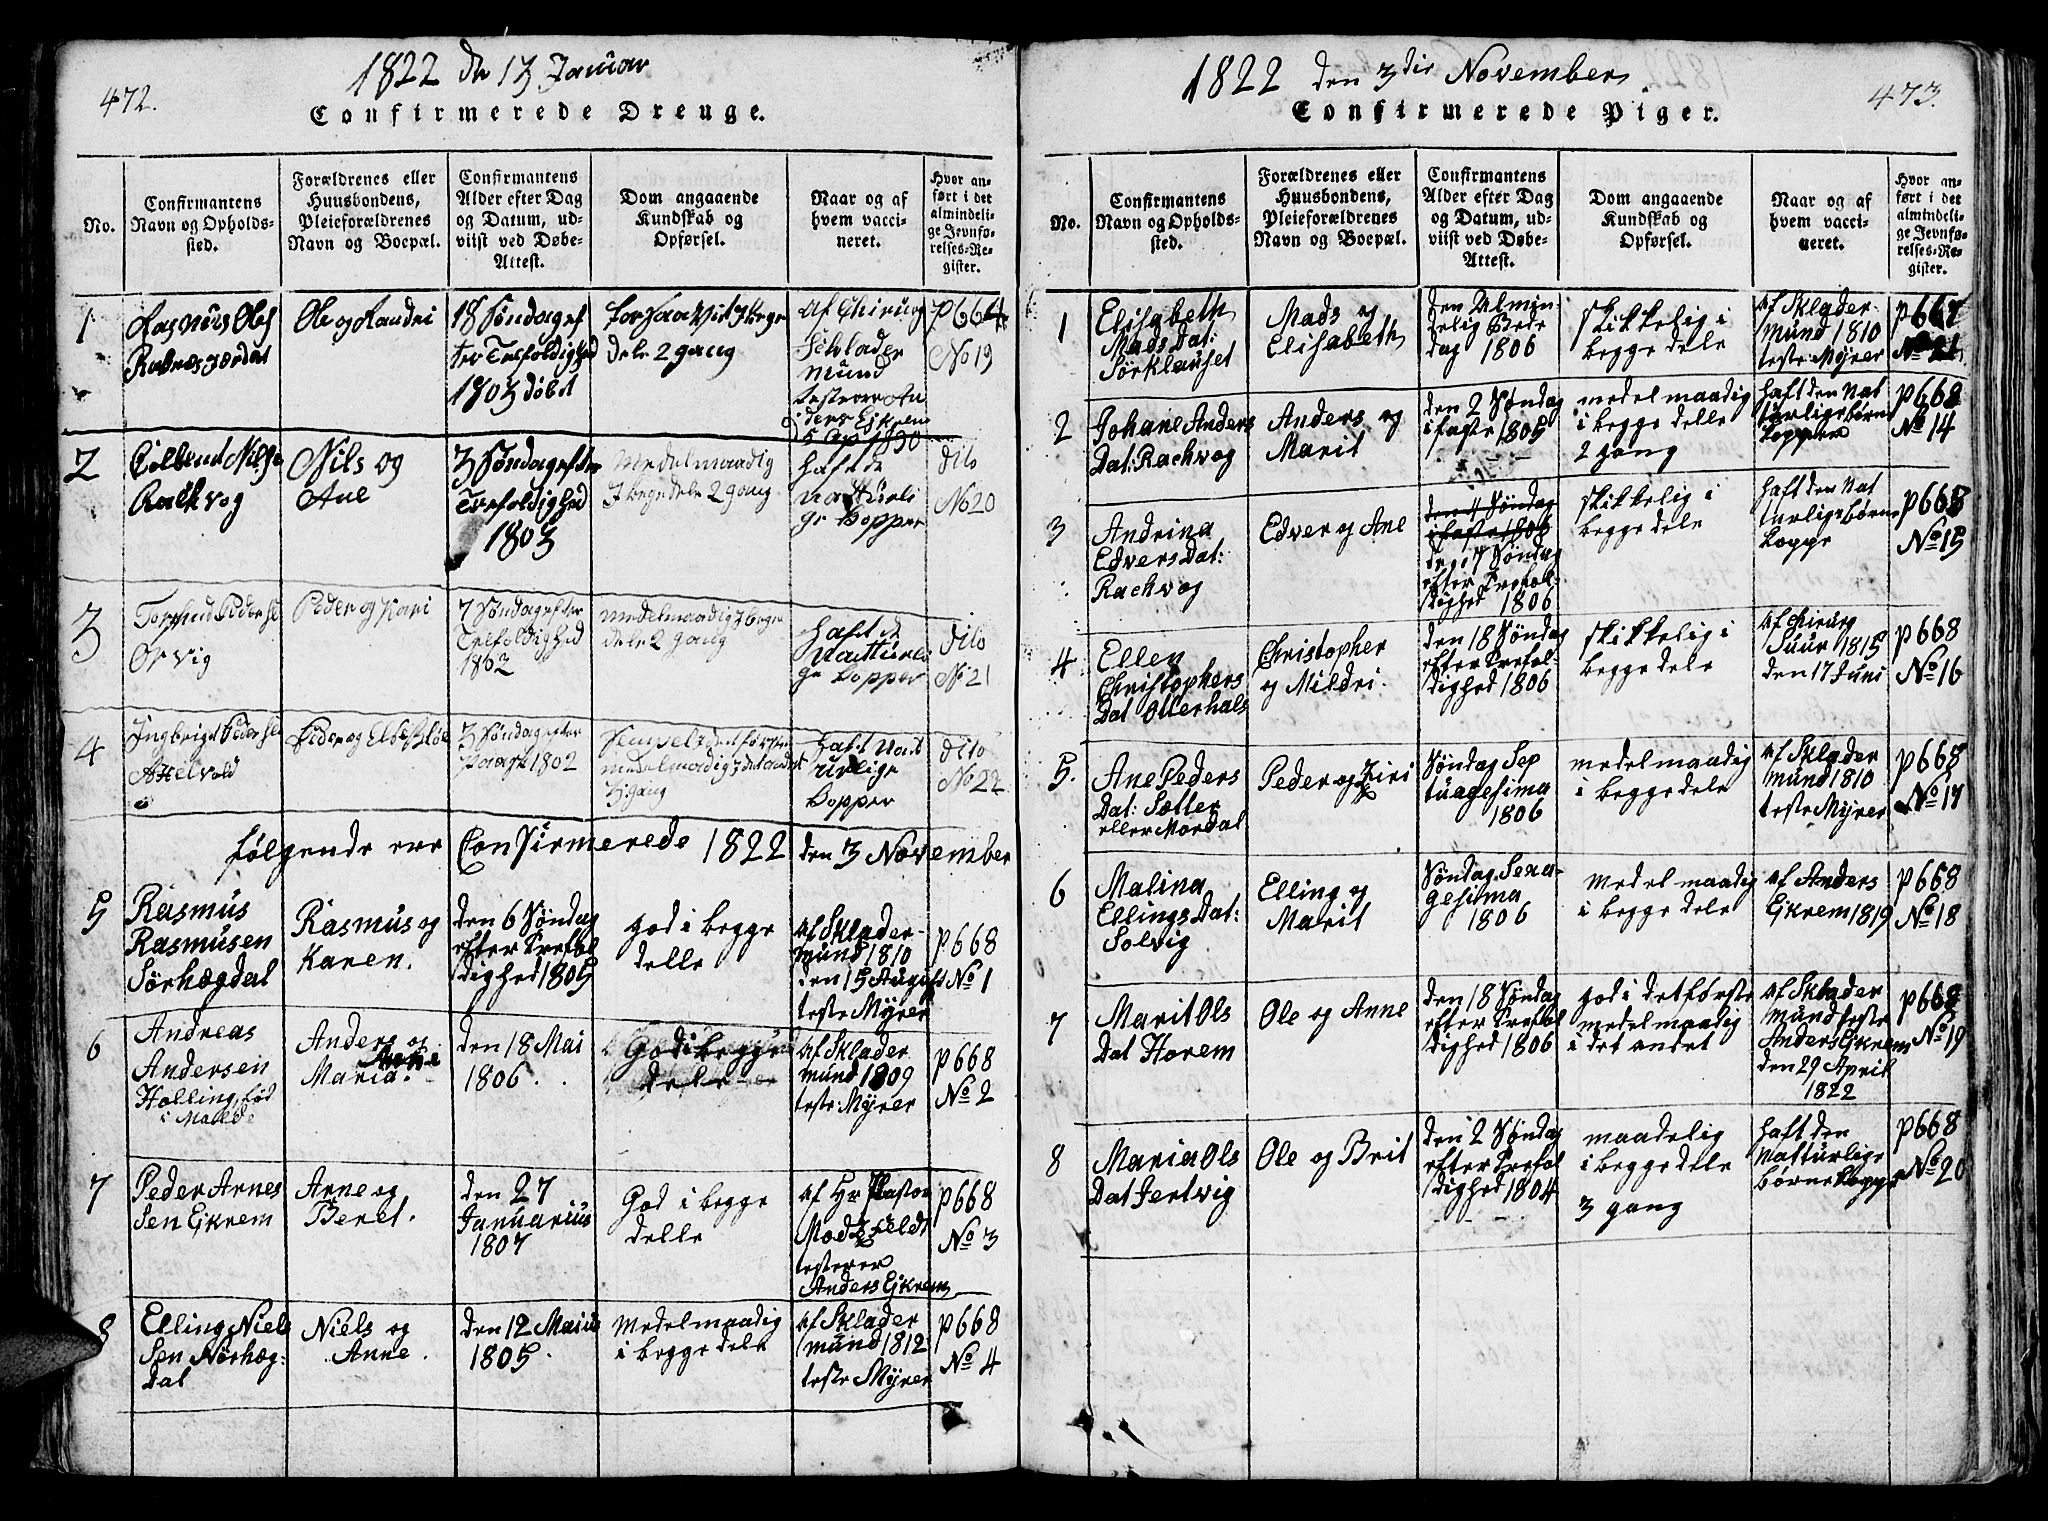 472.
1822 dn 13 Januar
Confirmerede Drenge.
No.
Confirmantens
Navn og Opholds-
sted.
Forældrenes eller
Huusbondens,
Pleieforældrenes
Navn og Boepæl.
Confirmantens
Alder efter Dag
og Datum, ud-
viist ved Døbe-
Attest.
Dom angaaende
Kundskab og
Opførsel.
Naar og af
hvem vacci-
neret.
Hvor an-
ført i det
almindeli-
ge Jevnfø-
relses-Re-
gister.
1
Rasmus Ols
Ole og Raudri
18 Søndag ef
ter Trefoldighed
1803 døbt
dele 2 gang
af Chirurg
Schlader
mund
p 664
No 19
2
Nils og
Ane
3 Søndag efter
Trefoldighed
1803
Medelmaadig
I begedele 2 gang
haft de
naturli
ge Copper
dito
No 20
3
Peder og Kari
7 Søndag efter
Trefoldighed
medelmaadig I bege
dele 2 gang
haft de
Natturli
ge Copper
dito
No 21
4
Ingbrigt Peders
3 Søndag efter
Paask 1802
haft Nat
urlige
Copper
dito
No 22
følgende ere Confirmerede 1822 den 3 November
5
Rasmus
Rasmusen
Sørhægdal
Rasmus og
Karen.
den 6 Søndag
efter Trefol
dighed 1805
god i begge
delle
af Sklader-
mund 1810
den 15 August
teste Myrer
p 668
No 1
6
Andreas
Andersen
Holling, fød
i Molde
Anders og
Maria.
den 18 Mai
1806.
God i begge
dele
af Sklader
mund 1809
teste: Myrer
p 668
No 2
7
Peder Arnes
Sen Ejkrem
Arne og
Beret.
den 27
Januarius
1807
God i begge
delle
af Hr Pastor
Modzfeldt
testerer
Anders Ejkrem
p 668
No 3
8
Elling Niels
Sen Nørhæg:
dal
Niels og
Anne.
den 12 Maius
1805.
medelmaadig
i begge dele
af Sklader
mund 1812
teste Myrer
p 668
No 4
1822 den 3die November
473.
Confirmerede Piger.
No.
Confirmantens
Navn og Opholds-
sted.
Forældrenes eller
Huusbondens,
Pleieforældrenes
Navn og Boepæl.
Confirmantens
Alder efter Dag
og Datum, ud-
viist ved Døbe-
Attest.
Dom angaaende
Kundskab og
Opførsel.
Naar og af
hvem vacci-
neret.
Hvor an-
ført i det
almindeli-
ge Jevnfø-
relses-Re-
gister.
1
Elisabeth
Mads Dat:
Sørklauset
Mads og
Elisabeth
den Almin
delig Bede
dag 1806
skikkelig i
begge dele
af Sklader
mund 1810
teste: Myrer
p 667
No 21
2
Johane Anders
Dat: Rachvog
Anders og
Marit
den 2 Søndag
i faste 1805
medelmaadig
i begge delle
2 gang
haft den Nat
turlige børne
kopper
p 668
No 14
3
Andrina
Edvers Dat:
Rachvog
Edver og Ane
den 4 Søndag
i faste 1806
den 17 Søndag
efter Trefol-
dighed 1806
skikkelig i
begge dele
haft den Nat
turlige børne
koppe
p 668
No 15
4
Ellen
Christophers
Dat Otterhals
Christopher
og Mildri.
den 18 Søndag
efter Trefol-
dighed 1806
skikkelig i
begge dele
af Chirurg
Suur 1815
den 17 Juni
p 668
No 16
5.
Ane Peders
Dat: Sætter
eller Mordal
Peder og Ziri
Søndag Sep
tuagesima
1806
medelmaadig
i begge dele
af Sklader
mund 1810
teste Myrer
p 668
No 17
6
Malina
Ellings Dat:
Solvig
Elling og
Marit
Søndag Sexa-
gesima
1806
medelmaadig
i begge dele
af Anders
Ejkrem 1819
p 668
No 18
7
Marit Ols
Dat Horem
Ole og Anne
den 18 Søndag
efter Trefol
dighed 1806
god i det første
medelmaadig
i det andet
af Sklader
mund teste
Anders Ejkrem
den 29 April
1822
p 668
No 19
8
Maria Ols
Dat Jertvig
Ole og Brit
den 2 Søndag
efter Trefol
dighed 1804
maadelig
i begge dele
3 gang
haft den
Natturlige
børne koppe
p 668
No 20